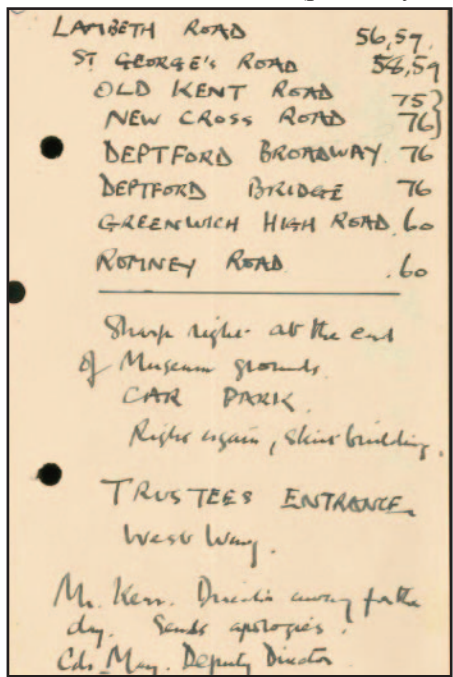 LAMBETH ROAD 56,59.
ST GEORGE'S ROAD 58,59
OLD KENT ROAD 75}
NEW CROSS ROAD 76}
DEPTFORD BROADWAY. 76
DEPTFORD BRIDGE 76
GREENWICH HIGH ROAD. 60
ROMNEY ROAD .60
Sharp right at the end
of Museum grounds.
CAR PARK.
Right again, skirt building.
TRUSTEES ENTRANCE.
West Wing.
Mr. Kerr. Director away for the
day. Sends apologies.
Cdr. May. Deputy Director